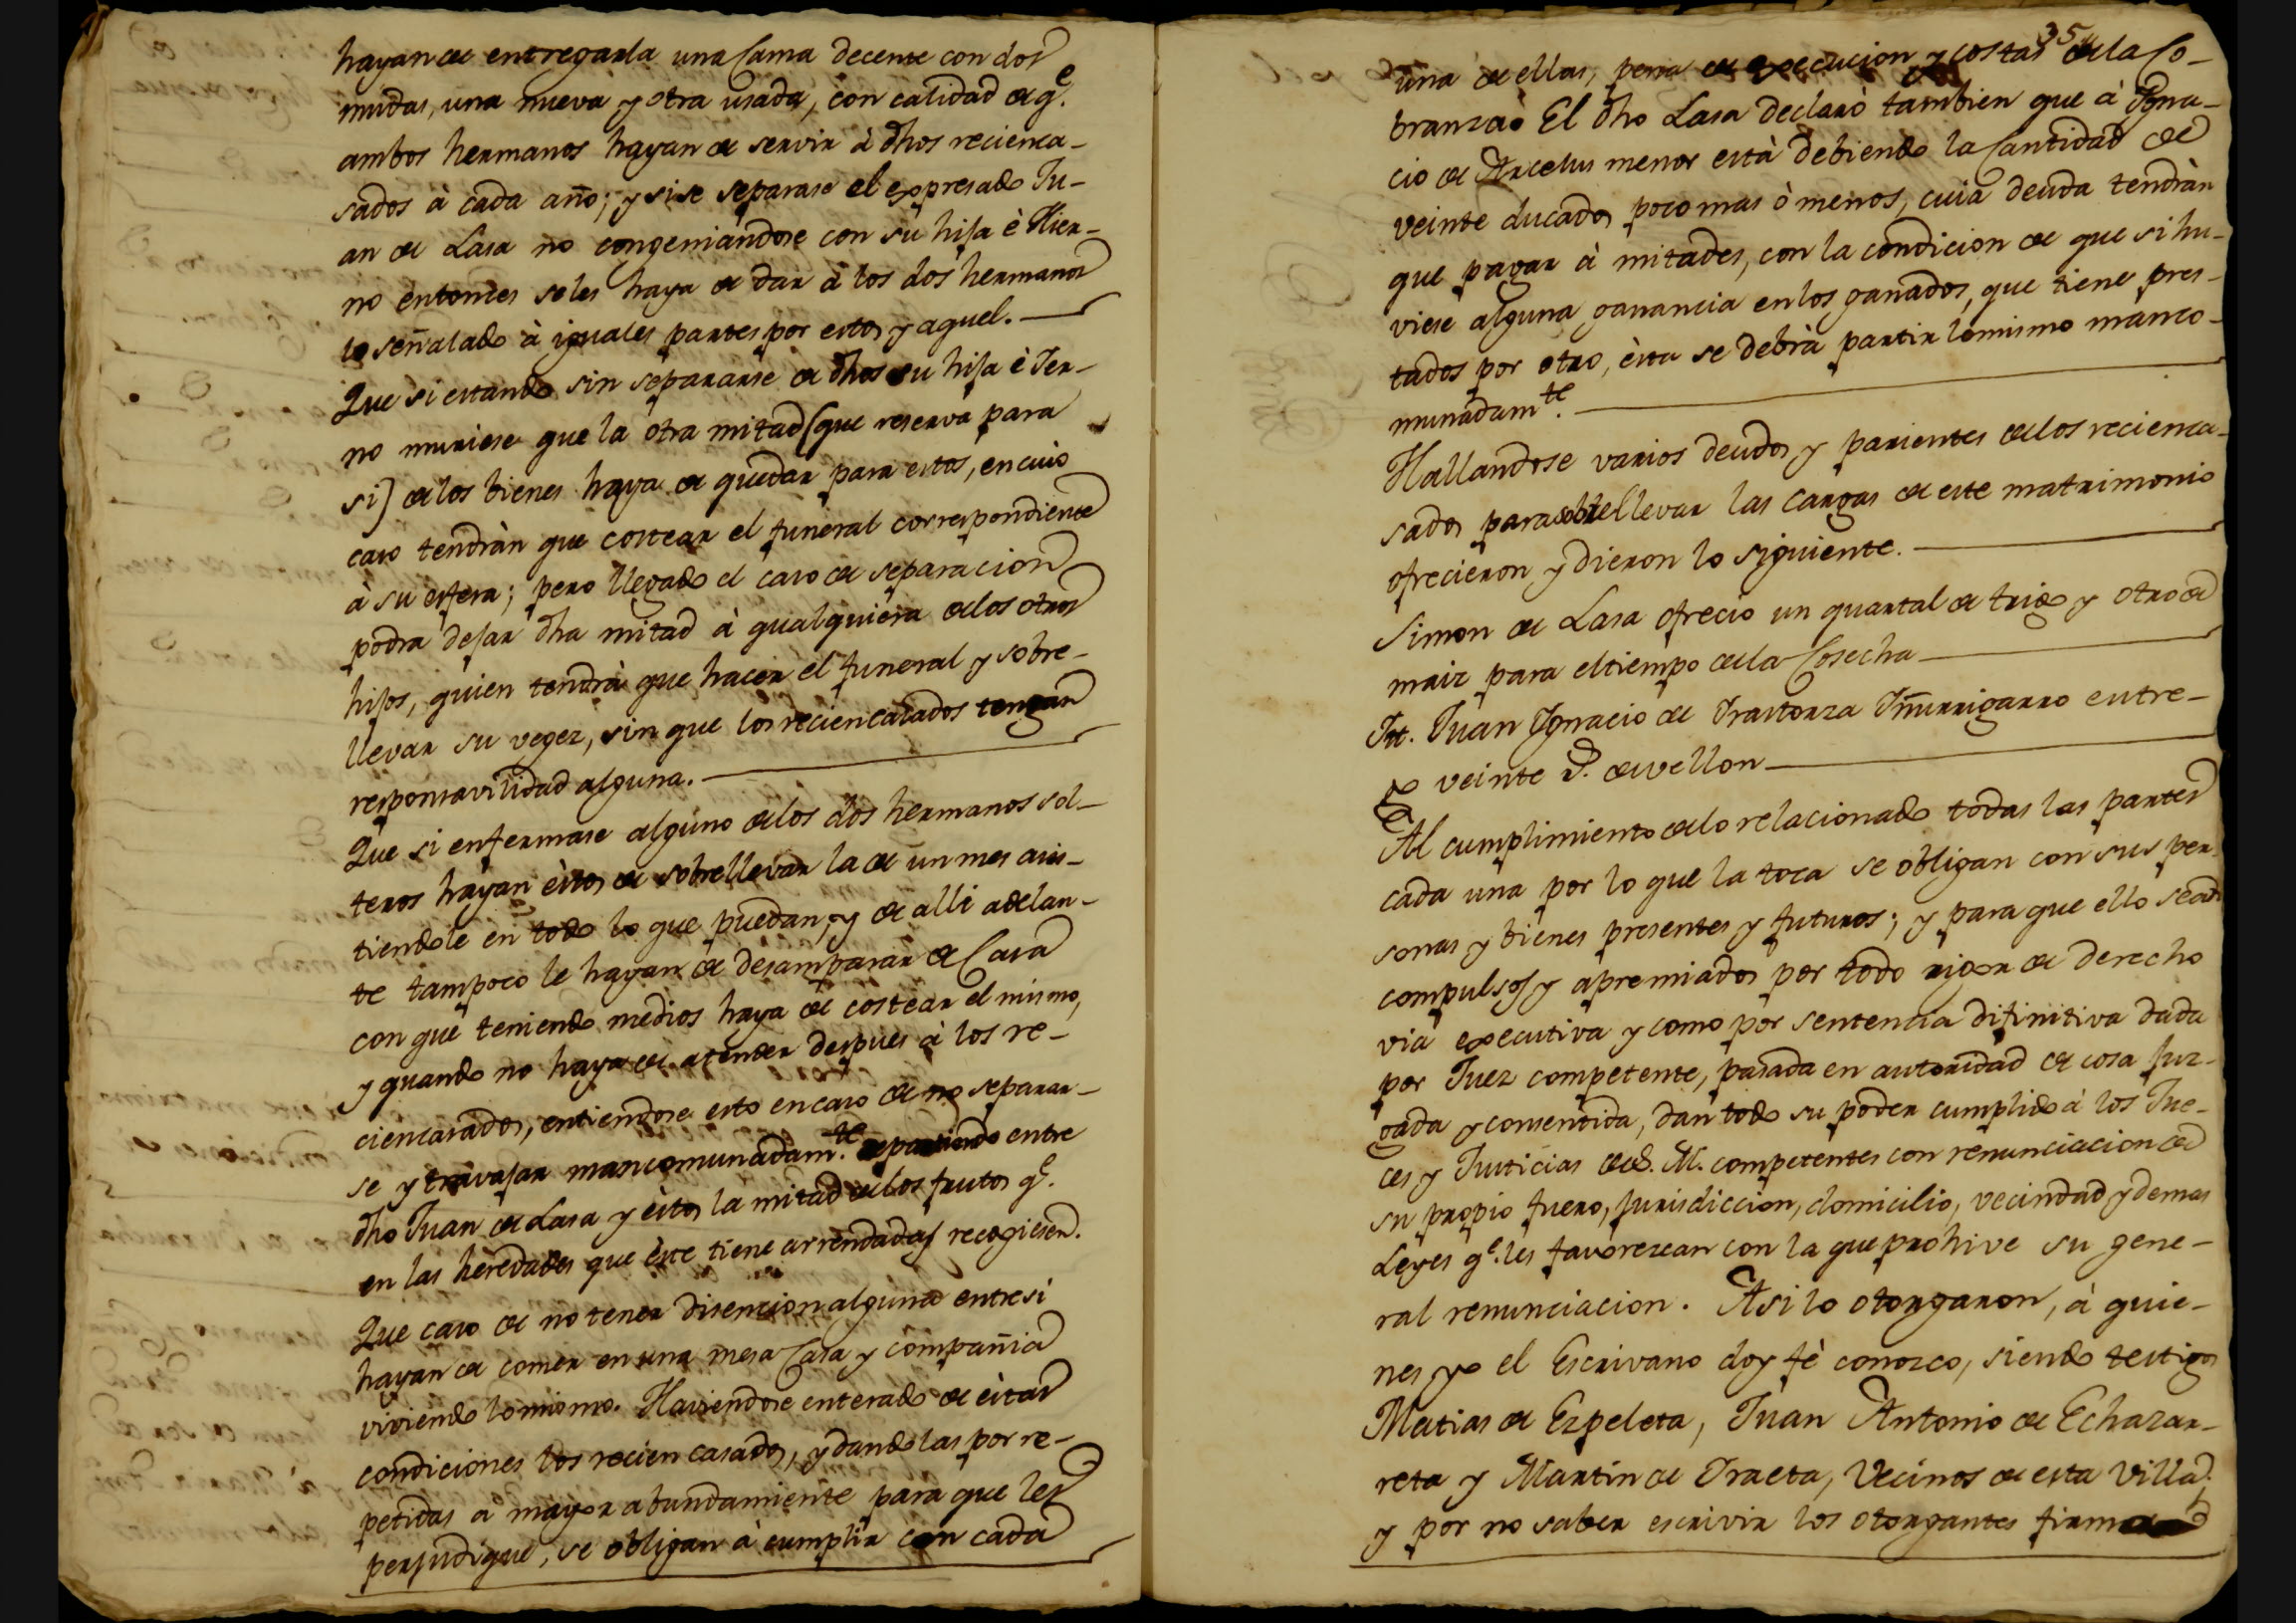 hayan de entregarla una Cama decente con dos
mudas, una nueva y otra usada, con calidad de q.e
ambos hermanos hayan de servir à dhos recienca-
sados à cada año; y si se separase el expresado Ju-
an de Lasa no congeniandose con su hija è Hier-
no entonces se les haya de dar à los dos hermanos
lo señalado à iguales partes por estos y aquel.
Que si estando sin separarse de dhos su hija è Ier-
no muriese que la otra mitad (que reserva para
si) de los bienes haya de quedar para estos, en cuio
caso tendràn que costear el funeral correspondiente
à su esfera; pero llegado el caso de separacion
podra dejar dha mitad à qualquiera de los otros
hijos, quien tendrà que hacer el funeral y sobre-
llevar su vegez, sin que los reciencasados tengan
responsavilidad alguna.
Que si enfermase alguno de los dos hermanos sol-
teros hayan èstos de sobrellevar la de un mes asis-
tiendole en todo lo que puedan, y de alli adelan-
te tampoco le hayan de desamparar de Casa
con que teniendo medios haya de costear el mismo,
y quando no haya de atender despues à los re-
ciencasados, entiendose esto en caso de no separar-
se y travajar mancomunadam.te repartiendo entre
dho Juan de Lasa y èstos la mitad de los frutos q.e
en las heredades que èste tiene arrendadas recogiesen.
Que caso de no tener disencion alguna entre si
hayan de comer en una mesa Casa y compañia
viviendo lo mismo. Haviendose enterado de èstas
condiciones los recien casados, y dandolas por re-
petidas a mayor abundamiente para que les
perjudique, se obligan à cumplir con cada
35
una de ellas, pena de execucion y costas de la Co-
branza. El dho Lasa declarò tambien que à Igna-
cio de Arcelus menor està debiendo la Cantidad de
veinte ducados poco mas ò menos, cuia deuda tendràn
que pagar à mitades, con la condicion de que si hu-
viese alguna ganancia en los ganados, que tiene pres-
tados por otro, èsta se debrà partir lo mismo manco-
munadam.te
Hallandose varios deudos y parientes de los recienca-
sados para sobrellevar las cargas de este matrimonio
ofrecieron y dieron lo siguiente.
Simon de Lasa ofrecio un quartal de trigo y otro de
maiz para el tiempo de la Cosecha
It. Juan Ignacio de Irastorza Iñurrigarro entre-
go veinte r.s de vellon
Al cumplimiento de lo relacionado todas las partes
cada una por lo que la toca se obligan con sus per-
sonas y bienes presentes y futuros; y para que ello sean
compulsos y apremiados por todo rigor de derecho
via executiva y como por sentencia difinitiva dada
por Juez competente, pasada en autoridad de cosa juz-
gada y consentida, dan todo su poder cumplido à los Jue-
ces y Justicias de S. M. competentes con renunciacion de
su propio fuero, jurisdiccion, domicilio, vecindad y demas
Leyes q.e les favorezcan con la que prohive su gene-
ral renunciacion. Asi lo otorgaron, à quie-
nes yo el Escrivano doy fè conozco, siendo testigos
Matias de Ezpeleta, Juan Antonio de Echazar-
reta y Martin de Iraeta, Vecinos de esta Villa,
y por no saber escrivir los otorgantes